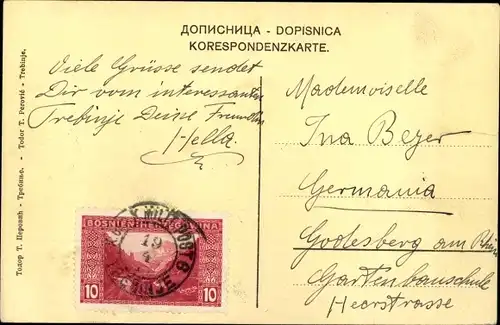 ДОПИСНИЦА - DOPISNICA
KORESPONDENZKARTE.
Viele Grüsse sendet
Dir vom interessanten
Trebinje Deine Freundin
Hella.
Mademoiselle
Ina Beyer
Germania
Godesberg am Rhein
Gartenbauschule
Heerstrasse
Тодор Т. Перовић - Требиње. - Todor T. Perović - Trebinje.
BOSNIEN HERCEGOVINA
10 10